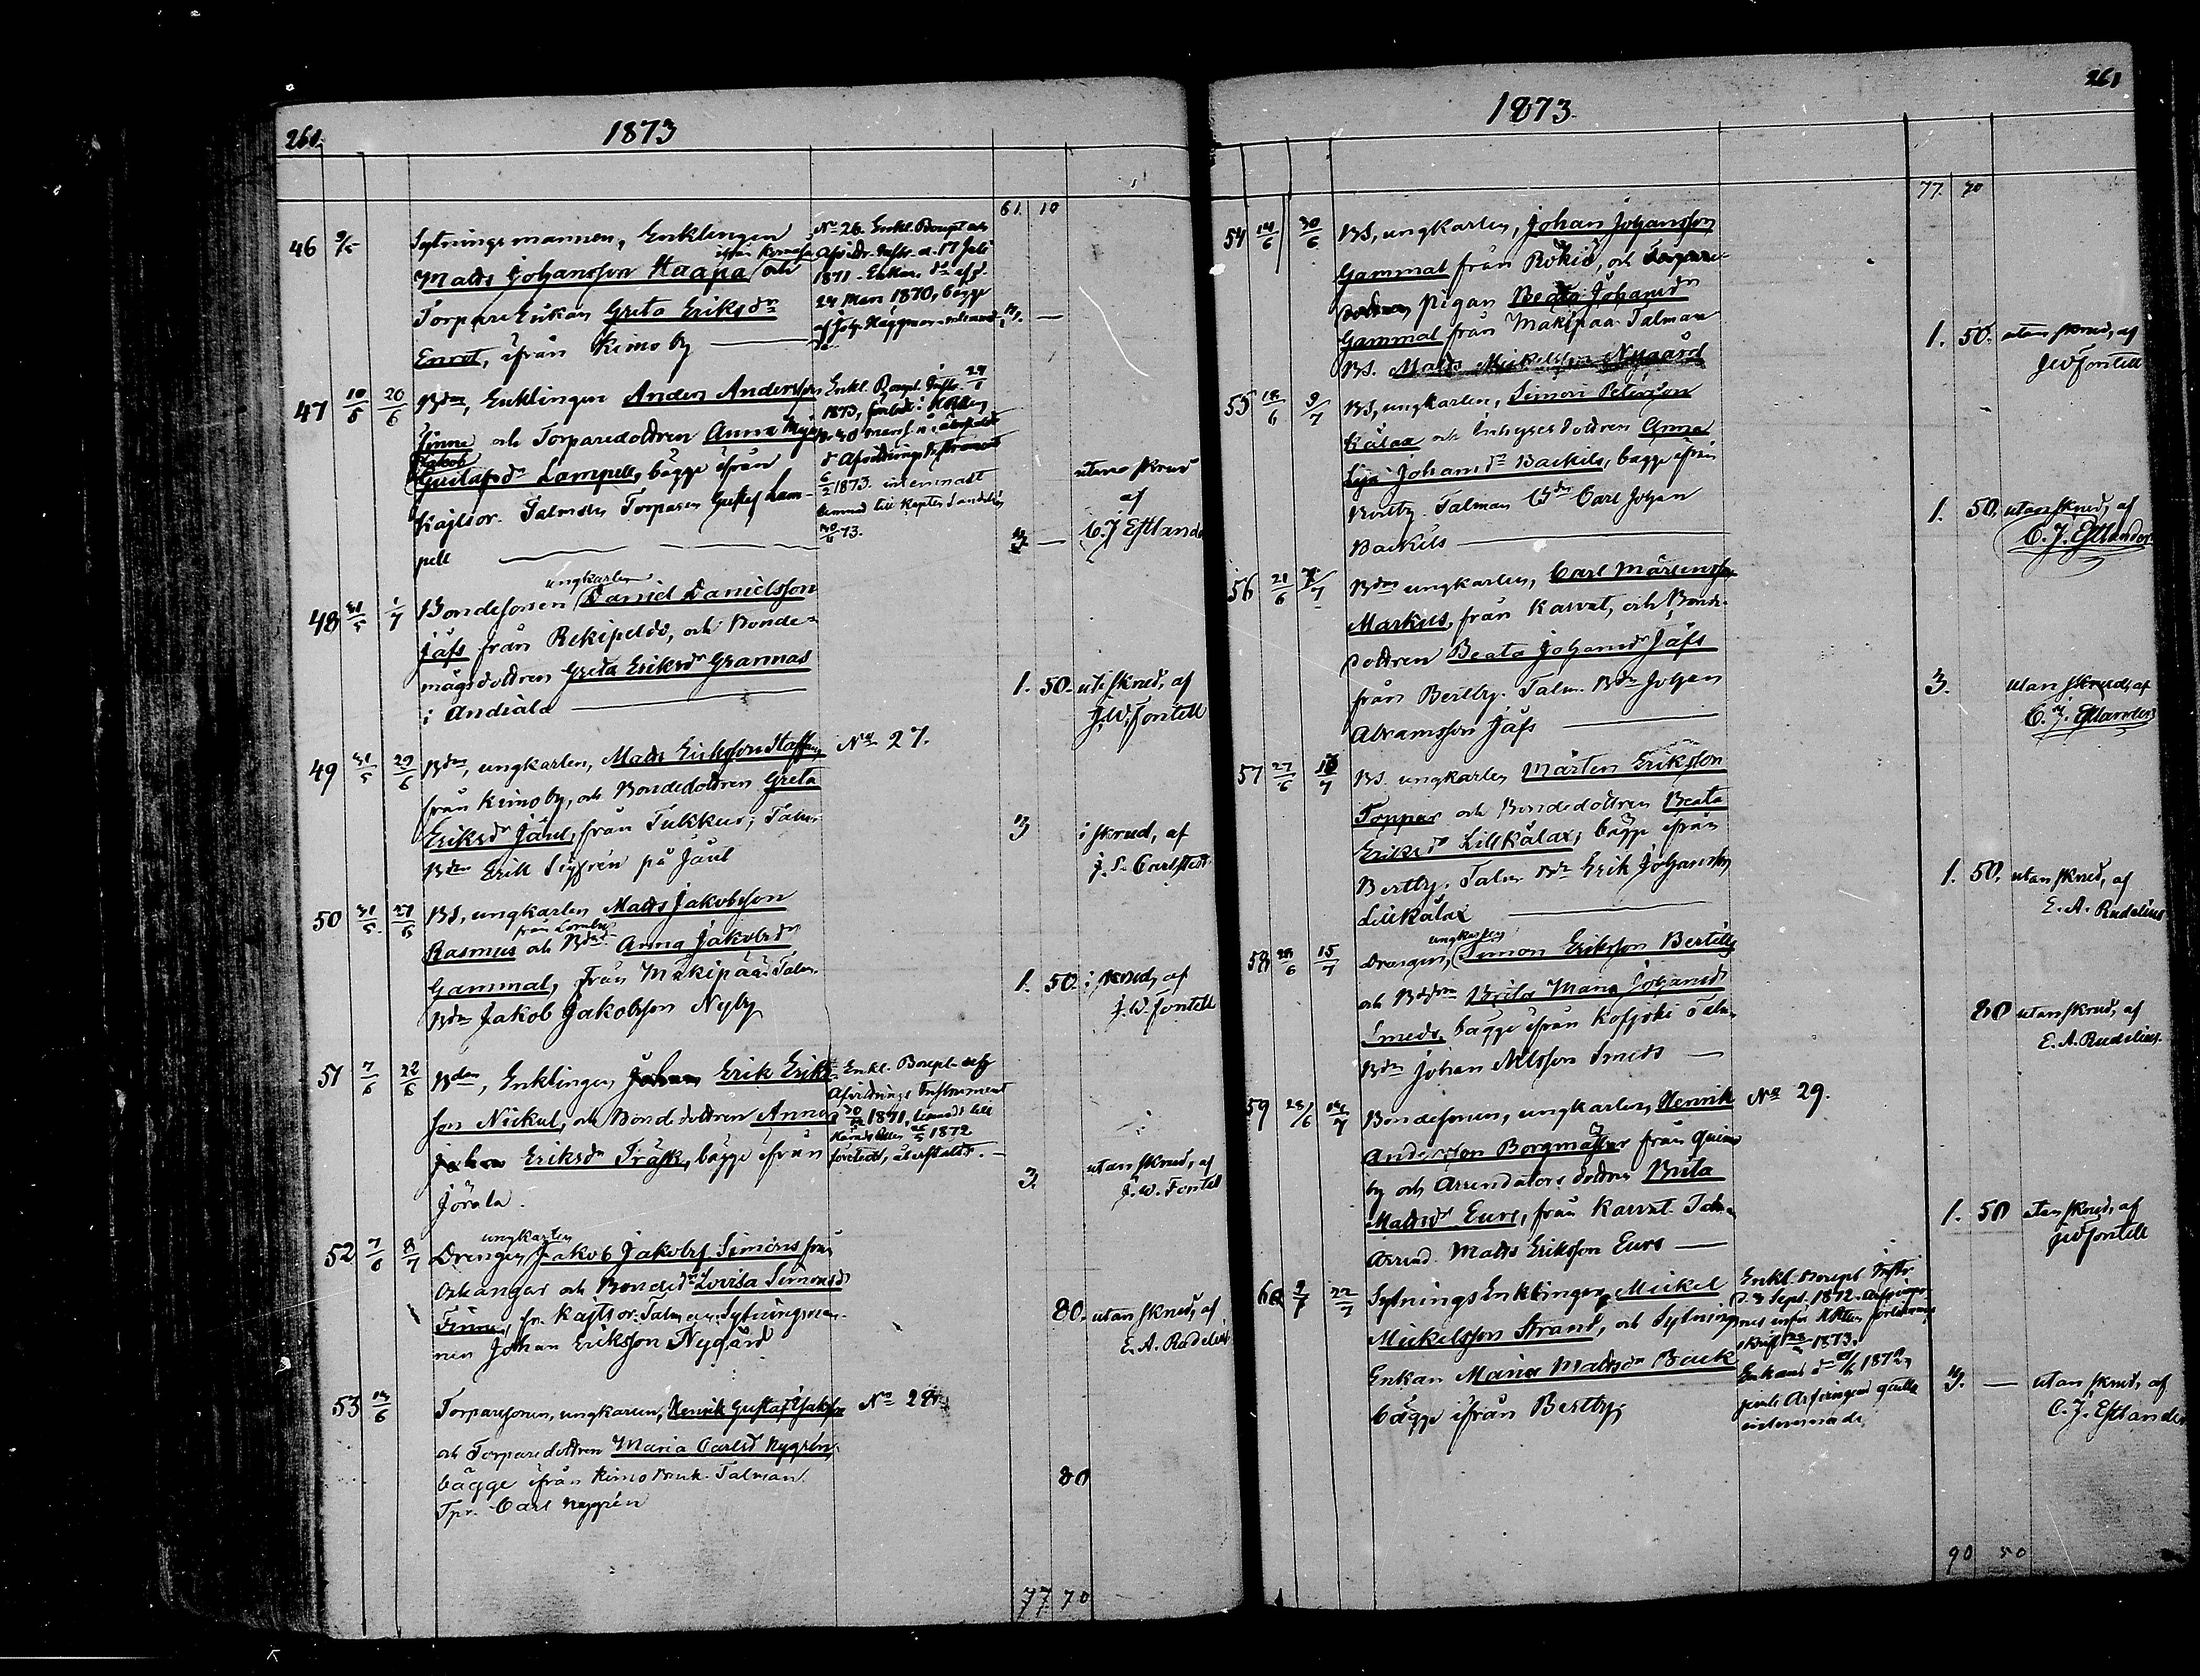 261.
1873
61. 10
46 9/5
Sytningsmannen, Enklingen
ifrån Kimoby
Matts Johansson Haapa och
Torpare Enkan Greta Eriksdr
Enrot, ifrån Kimo by
No 26. Enkl. Bouppt. och
1871
24 Mars 1870, bägge
3. —
47 10/5 20/6
Bdn, Enklingen Anders Andersson
Finne och Torparedottren Anna Maja
Jakob
Gustafsdr Lampell, bägge ifrån
Kajtsor. Talman Torparen Gustaf Lam-
pell
Enkl. Bouppt. Instr. 24/6
1873,
d Afvittrings Instrument
6/2 1873.
30/6 73.
3. —
utan skrud
af
C. J. Estlander
48 31/5 1/7
ungkarlen
Bondesonen Daniel Danielsson
Jäfs från Rekipeldo, och Bonde-
mågsdottren Greta Eriksdr Grannas
i Andiala
1. 50.
uti skrud, af
J. W. Fontell
49 31/5 29/6
Bdn, ungkarlen, Matts Eriksson Staffans
från Kimo by, och Bondedottren Greta
Eriksdr Jåul, från Tukkur; Talm.
Bdn Erik Sigfrén på Jåul
No 27.
3
i skrud, af
J. S. Carlstedt
50 31/5 27/6
BS, ungkarlen Matts Jakobsson
från Lomby
Rasmus och Bdr Anna Jakobsdr
Gammal, från Mäkipää. Talm.
Bdn Jakob Jakobsson Nyby
1. 50.
i skrud, af
J. W. Fontell
51 7/6 22/6
Bdn, Enklingen Johan Erik Eriks-
son Nickul, och Bondedottren Anna
Johan Eriksdr Träsk, bägge ifrån
Jörala.
Enkl. Bouppt. och
Afvittrings Instrument
30/12 1871, lemnadt till
1872
företedt, återstäldt.
3.
utan skrud, af
J. W. Fontell
52 7/6 8/7
ungkarlen
Drengen Jakob Jakobs. Simons från
Oxkangar och Bondedr Lovisa Simonsdr
Finne, fr. Kajtsor. Talman Sytningsman-
nen Johan Eriksson Nygård
80.
utan skrud, af
E. A. Rudelius
53 14/6
Torparesonen, ungkarlen, Henrik Gustaf Isaksson
och Torparedottren Maria Carlsd. Nygrén,
bägge ifrån Kimo bruk. Talman
Tpr. Carl Nygrén
No 28.
80
77 70
261
1873.
77. 70
54 14/6 30/6
BS, ungkarlen, Johan Johansson
Gammal från Rökiö, och Torpare-
dottren pigan Beata Johansdr
Gammal från Mäkipää. Talman
BS. Matts Mickelsson Nygård
1. 50.
utan skrud, af
J W Fontell
55 18/6 9/7
BS, ungkarlen, Simon Petersson
Kålax och Inhysesdottren Anna
Lisa Johansdr Backils, bägge ifrån
Bertby. Talman Bdn Carl Johan
Backils
1. 50.
utan skrud, af
C. J. Estlander
56 21/6 7/7
Bdn ungkarlen, Carl Mårtensson
Markus, från Karvat, och Bonde-
dottren Beata Johansdr Jäfs
från Bertby. Talm. Bdn Johan
Abramsson Jäfs
3.
utan skrud, af
C. J. Estlander
57 27/6 13/7
BS. ungkarlen Mårten Eriksson
Toppar och Bondedottren Beata
Eriksdr Lillkålax, bägge ifrån
Bertby. Talm. Bdn Erik Johansson
Lillkålax
1. 50.
utan skrud, af
E. A. Rudelius
58 28/6 15/7
ungkarlen
Drengen, Simon Eriksson Bertills
och Bddrn Greta Maria Johansdr
Smeds, bägge ifrån Kosjoki. Talm.
Bdn Johan Nilsson Smeds
80
utan skrud, af
E. A. Rudelius.
59 28/6 14/7
Bondesonen, ungkarlen, Henrik
Andersson Borgmästar från Quimo
by och Arrendators dottren Brita
Mattsdr Eurs, från Karvat. Talm.
Arrend. Matts Eriksson Eurs
No 29.
1. 50
utan skrud, af
J W Fontell
60 2/7 22/7
Sytnings Enklingen Mickel
Mickelsson Strand, och Sytnings
Enkan Maria Mattsdr Back
bägge ifrån Bertby,
Enkl. Bouppt. Instr.
d. 3 Sept. 1872.
1873.
Enkans d 1872,
3. —
utan skrud, af
C. J. Estlander
90 50